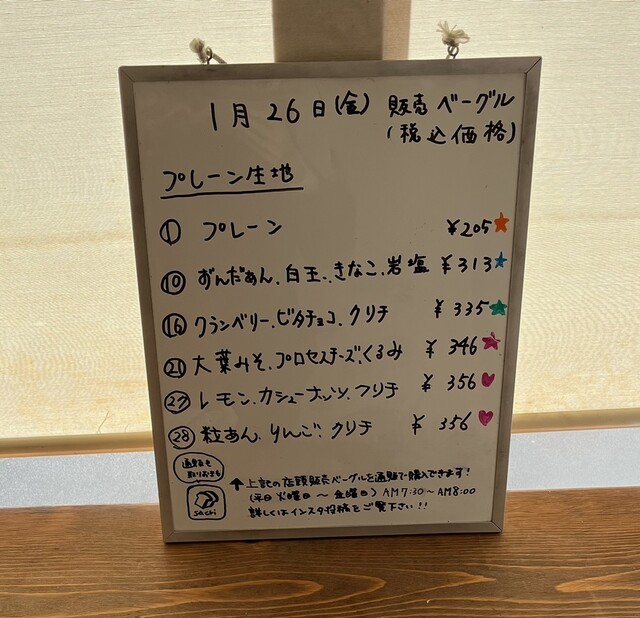 1月 26日(金) 販売ベーグル
(税込価格)
プレーン生地
① プレーン ¥205
⑩ ずんだあん、白玉、きなこ、岩塩 ¥313
⑯ クランベリー、ビタチョコ、クリチ ¥335
㉑ 大葉みそ、プロセスチーズ、くるみ ¥346
㉗ レモン、カシューナッツ、クリチ ¥356
㉘ 粒あん、りんご、クリチ ¥356
通販も
取りおきも
sachi
↑上記の店頭販売ベーグルを通販で購入できます!
(平日 火曜日 〜 金曜日) AM7:30〜AM8:00
詳しくはインスタ投稿をご覧下さい!!